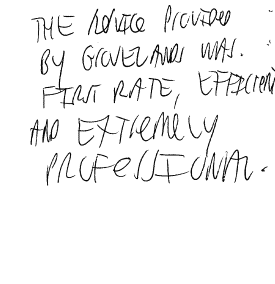 THE ADVICE PROVIDED
BY GROVELANDS WAS.
FIRST RATE, EFFICIENT
AND EXTREMELY
PROFESSIONAL.